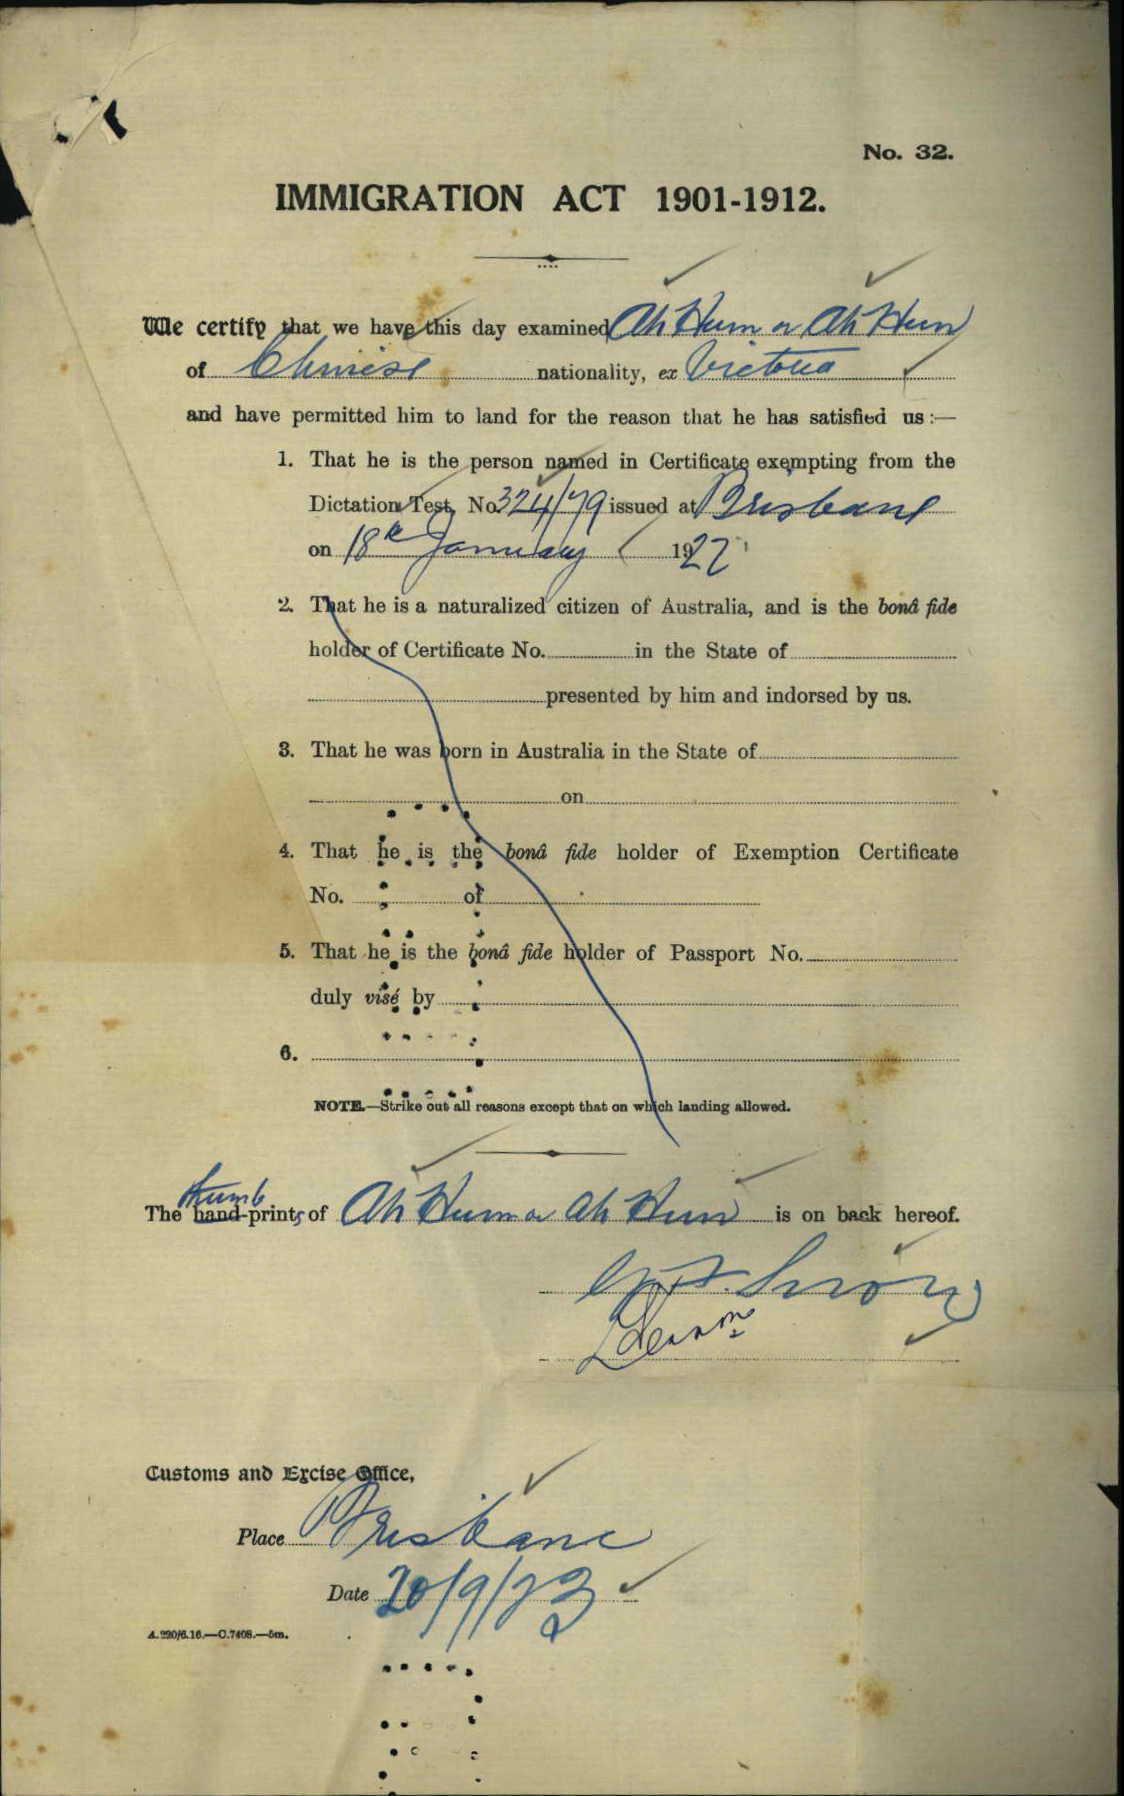 No. 32.
IMMIGRATION ACT 1901-1912.
We certify that we have this day examined Ah Hum or Ah Hun
of Chinese nationality, ex Victoria
and have permitted him to land for the reason that he has satisfied us :—
1. That he is the person named in Certificate exempting from the
Dictation Test, No. 324/79 issued at Brisbane
on 18th January 1922
2. That he is a naturalized citizen of Australia, and is the bonâ fide
holder of Certificate No. in the State of
presented by him and indorsed by us.
3. That he was born in Australia in the State of
on
4. That he is the bonâ fide holder of Exemption Certificate
No. of
5. That he is the bonâ fide holder of Passport No.
duly visé by
6.
NOTE.—Strike out all reasons except that on which landing allowed.
thumb
The hand-prints of Ah Hum or Ah Hun is on back hereof.
Customs and Excise Office,
Place Brisbane
Date 20/9/23
A.220/6.16.—C.7408.—5m.